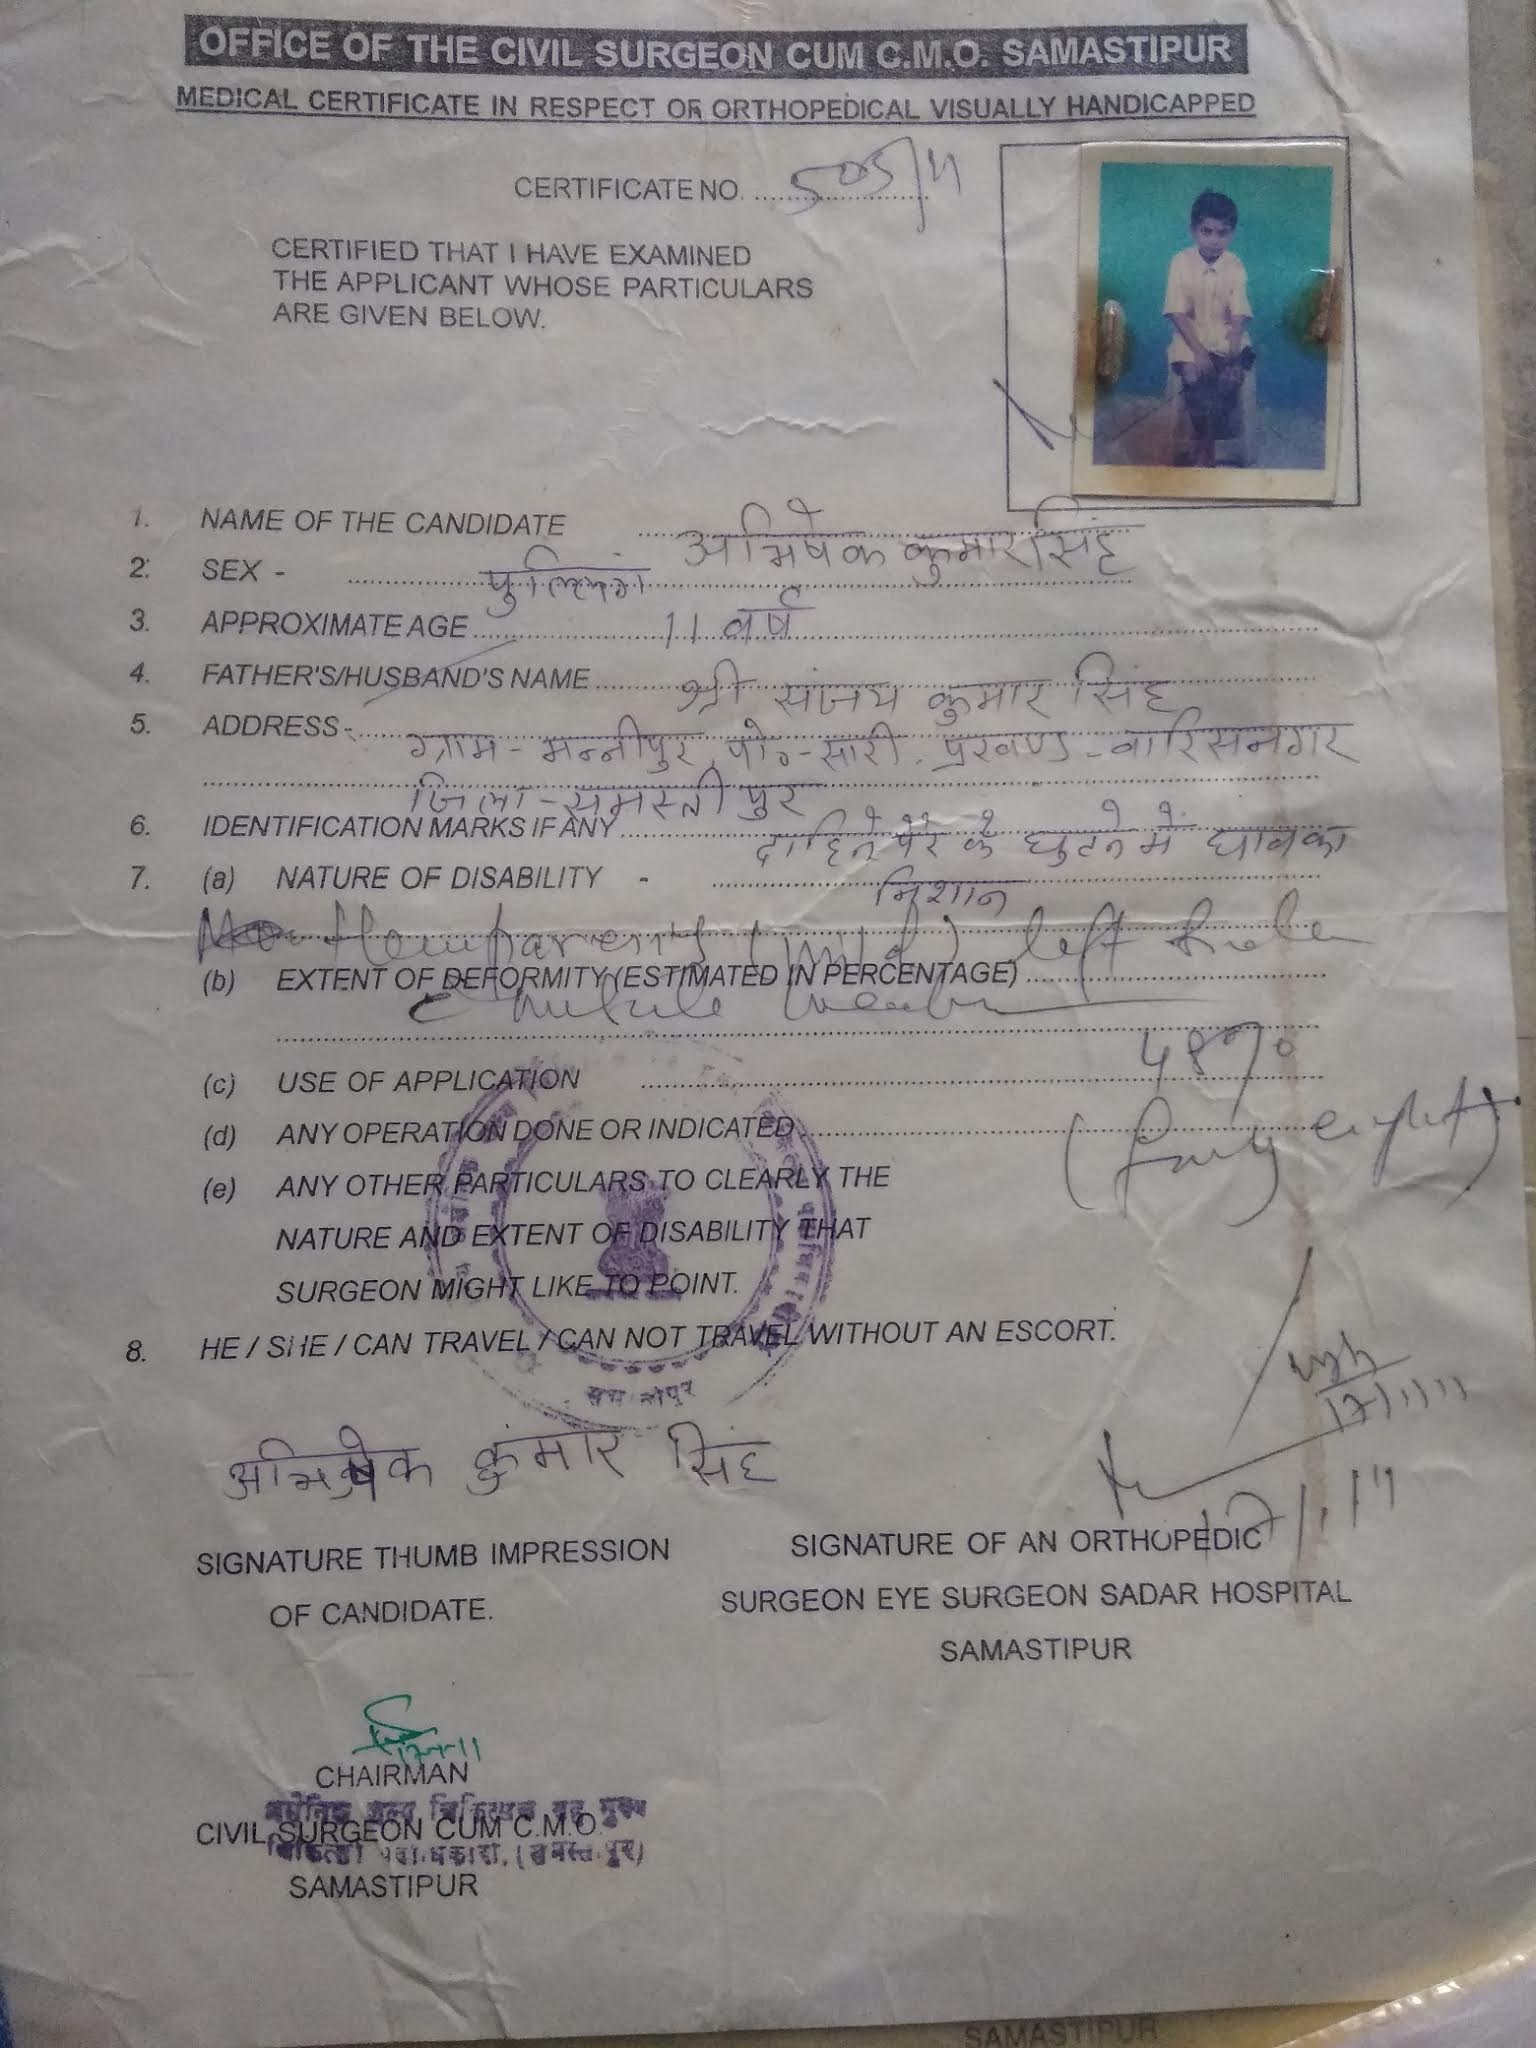 OFFICE OF THE CIVIL SURGEON CUM C.M.O. SAMASTIPUR
MEDICAL CERTIFICATE IN RESPECT OR ORTHOPEDICAL VISUALLY HANDICAPPED
CERTIFICATE NO. 505/11
CERTIFIED THAT I HAVE EXAMINED
THE APPLICANT WHOSE PARTICULARS
ARE GIVEN BELOW.
1. NAME OF THE CANDIDATE अभिषेक कुमार सिंह
2. SEX -
3. APPROXIMATE AGE 11 वर्ष
4. FATHER'S/HUSBAND'S NAME श्री संजय कुमार सिंह
5. ADDRESS - ग्राम - मन्नीपुर, पो०-सारी, प्रखण्ड - वारिसनगर
जिला - समस्तीपुर
6. IDENTIFICATION MARKS IF ANY दाहिने पैर के घुटने में घाव का
7. (a) NATURE OF DISABILITY - निशान
(mild) left
(b) EXTENT OF DEFORMITY (ESTIMATED IN PERCENTAGE)
48%
(c) USE OF APPLICATION
(d) ANY OPERATION DONE OR INDICATED
(e) ANY OTHER PARTICULARS TO CLEARLY THE
NATURE AND EXTENT OF DISABILITY THAT
SURGEON MIGHT LIKE TO POINT.
8. HE / SHE / CAN TRAVEL / CAN NOT TRAVEL WITHOUT AN ESCORT.
17/1/11
अभिषेक कुंमार सिंह
17/1/11
SIGNATURE THUMB IMPRESSION
OF CANDIDATE.
SIGNATURE OF AN ORTHOPEDIC
SURGEON EYE SURGEON SADAR HOSPITAL
SAMASTIPUR
CHAIRMAN
CIVIL SURGEON CUM C.M.O.
SAMASTIPUR
SAMASTIPUR